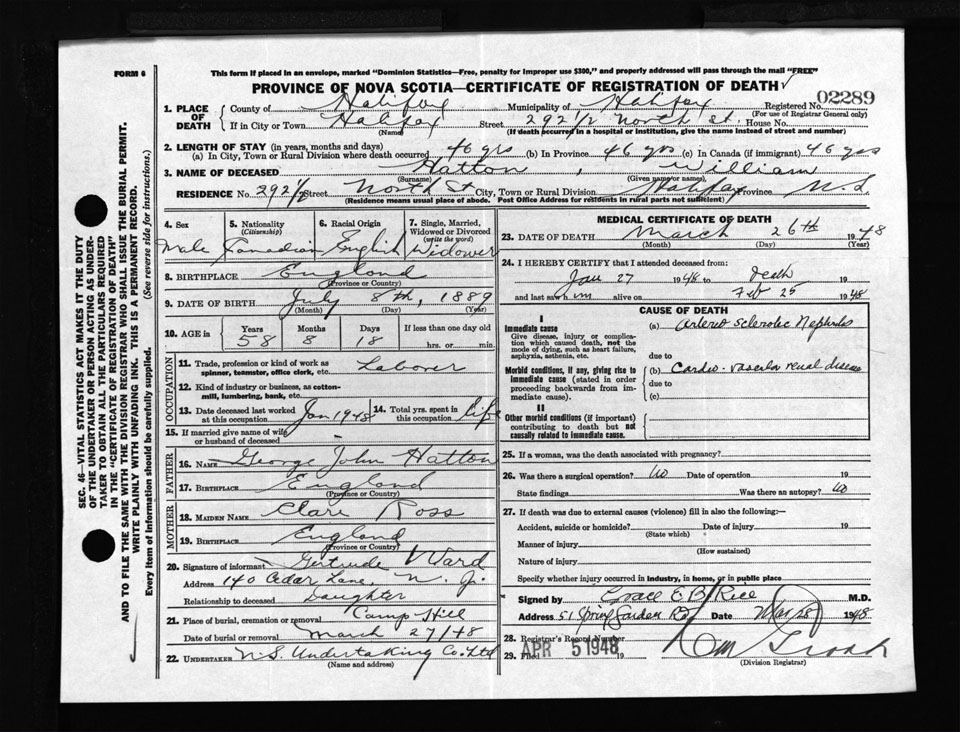 FORM 6
This form if placed in an envelope, marked "Dominion Statistics—Free, penalty for improper use $300," and properly addressed will pass through the mail "FREE"
PROVINCE OF NOVA SCOTIA—CERTIFICATE OF REGISTRATION OF DEATH
02289
1. PLACE OF DEATH County of Halifax Municipality of Halifax Registered No.
(For use of Registrar General only)
If in City or Town Halifax Street 292 1/2 North St. House No.
(Name) (If death occurred in a hospital or institution, give the name instead of street and number)
2. LENGTH OF STAY (in years, months and days)
(a) In City, Town or Rural Division where death occurred 46 yrs (b) In Province 46 yrs (c) In Canada (if immigrant) 46 yrs
3. NAME OF DECEASED Hatton, William
(Surname) (Given name or names)
RESIDENCE No. 292 1/2 Street North St City, Town or Rural Division Halifax Province N.S
(Residence means usual place of abode. Post Office Address for residents in rural parts not sufficient)
4. Sex Male
5. Nationality (Citizenship) Canadian
6. Racial Origin English
7. Single, Married, Widowed or Divorced (write the word) Widower
8. BIRTHPLACE England
(Province or Country)
9. DATE OF BIRTH July 8th, 1889
(Month) (Day) (Year)
10. AGE in Years Months Days If less than one day old
58 8 18 hrs. or min.
OCCUPATION
11. Trade, profession or kind of work as spinner, teamster, office clerk, etc. Laborer
12. Kind of industry or business, as cotton-mill, lumbering, bank, etc.
13. Date deceased last worked at this occupation Jan 1948
14. Total yrs. spent in this occupation Life
15. If married give name of wife or husband of deceased
FATHER
16. NAME George John Hatton
17. BIRTHPLACE England
(Province or Country)
MOTHER
18. MAIDEN NAME Clara Ross
19. BIRTHPLACE England
(Province or Country)
20. Signature of informant Gertrude Ward
Address 140 Cedar Lane, N. J.
Relationship to deceased Daughter
21. Place of burial, cremation or removal Camp Hill
Date of burial or removal March 27/48
22. UNDERTAKER N.S. Undertaking Co. Ltd
(Name and address)
MEDICAL CERTIFICATE OF DEATH
23. DATE OF DEATH March 26th 1948
(Month) (Day) (Year)
24. I HEREBY CERTIFY that I attended deceased from:
Jan 27 1948 to Death 19
and last saw him alive on Feb 25 1948
CAUSE OF DEATH
I
Immediate cause
Give disease, injury or complication which caused death, not the mode of dying, such as heart failure, asphyxia, asthenia, etc.
(a) Arterio Sclerotic Nephritis
due to
Morbid conditions, if any, giving rise to immediate cause (stated in order proceeding backwards from immediate cause).
(b) Cardio-vascular renal disease
due to
(c)
II
Other morbid conditions (if important) contributing to death but not causally related to immediate cause.
25. If a woman, was the death associated with pregnancy?
26. Was there a surgical operation? no Date of operation 19
State findings Was there an autopsy? no
27. If death was due to external causes (violence) fill in also the following:—
Accident, suicide or homicide? Date of injury 19
(State which)
Manner of injury
(How sustained)
Nature of injury
Specify whether injury occurred in industry, in home, or in public place
Signed by Grace E.B. Rice M.D.
Address 51 Spring Garden Rd Date Mar 28 1948
28. Registrar's Record Number
29. Filed APR 5 1948 19
(Division Registrar)
SEC. 46—VITAL STATISTICS ACT MAKES IT THE DUTY
OF THE UNDERTAKER OR PERSON ACTING AS UNDER-
TAKER TO OBTAIN ALL THE PARTICULARS REQUIRED
IN THE "CERTIFICATE OF REGISTRATION OF DEATH"
AND TO FILE THE SAME WITH THE DIVISION REGISTRAR WHO SHALL ISSUE THE BURIAL PERMIT.
WRITE PLAINLY WITH UNFADING INK. THIS IS A PERMANENT RECORD.
Every item of information should be carefully supplied. (See reverse side for instructions.)